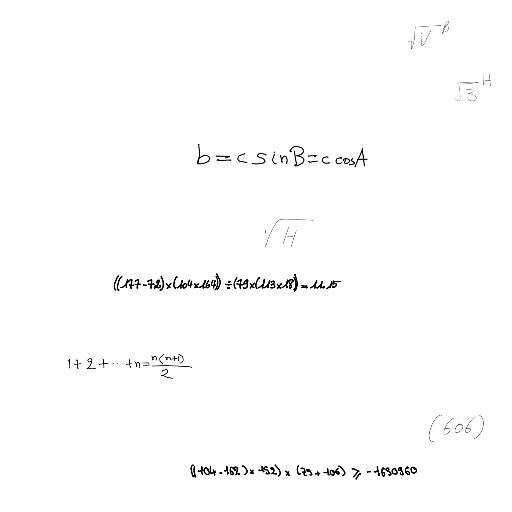 √V^B
√3^H
b=c sinB=c cosA
√H
((177-72)×(104×164))÷(79×(113×18))=11.15
1+2+⋯+n=n(n+1)/2
(606)
((104-162)×152)×(79+106)⩾-1630960